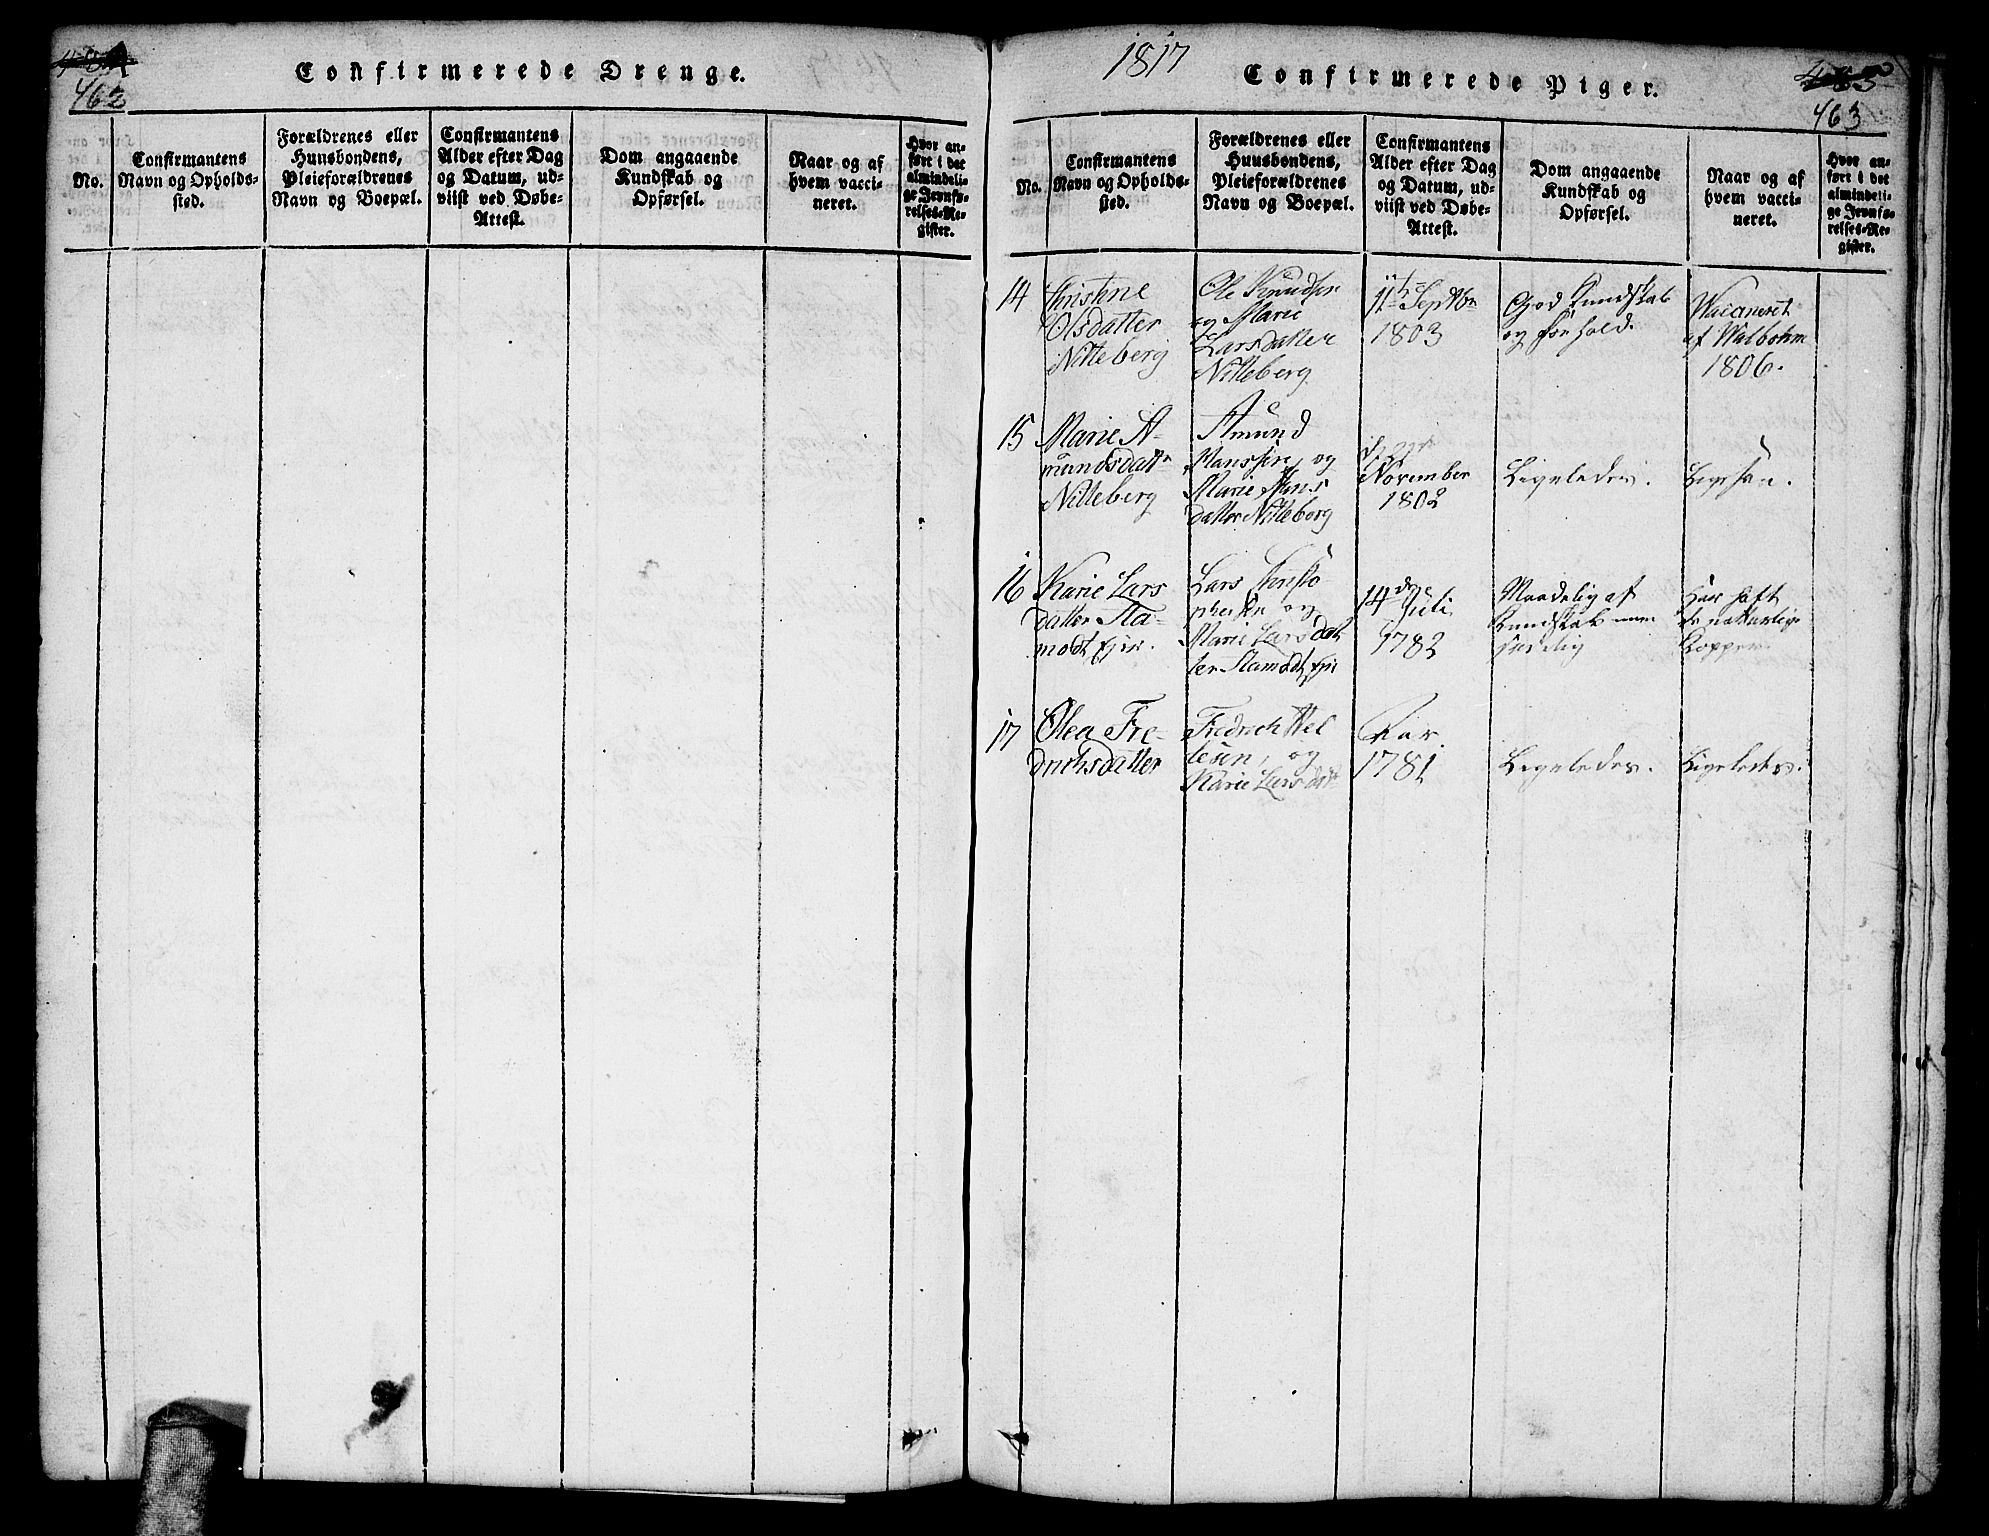 462
Confirmerede Drenge.
No.
Confirmantens
Navn og Opholds-
sted.
Forældrenes eller
Huusbondens,
Pleieforældrenes
Navn og Boepæl.
Confirmantens
Alder efter Dag
og Datum, ud-
viist ved Døbe-
Attest.
Dom angaaende
Kundskab og
Opførsel.
Naar og af
hvem vacci-
neret.
Hvor an-
ført i det
almindeli-
ge Jevnfø-
relses-Re-
gister.
1817
Confirmerede Piger.
485
463
No.
Confirmantens
Navn og Opholds-
sted.
Forældrenes eller
Huusbondens,
Pleieforældrenes
Navn og Boepæl.
Confirmantens
Alder efter Dag
og Datum, ud-
viist ved Døbe-
Attest.
Dom angaaende
Kundskab og
Opførsel.
Naar og af
hvem vacci-
neret.
Hvor an-
ført i det
almindeli-
ge Jevnfø-
relses-Re-
gister.
14
Christine
Olsdatter
Nitteberg
Ole Knudsen
og Marie
Larsdatter
Nitteberg
11te Septbr
1803
God Kundskab
og forhold.
Waccineret
af Walbohm
1806.
15
Marie A-
mundsdattr
Nitteberg
Amund
Hanssen, og
Marie Hans
datter Nitteberg
November
1802
Ligeledes.
Ligesaa.
16
Karie Lars
datter Sta-
Lars Christo-
phersen og
Marie Larsdat
ter
14de Juli
1782
Maadelig af
Kundskab men
sædelig
Har haft
de naturlige
Kopper.
17
Olea Fre-
drichsdatter
Fredrich Hel
lesen, og
Karie Larsdatr
Aar
1781
Ligeledes.
Ligeledes.